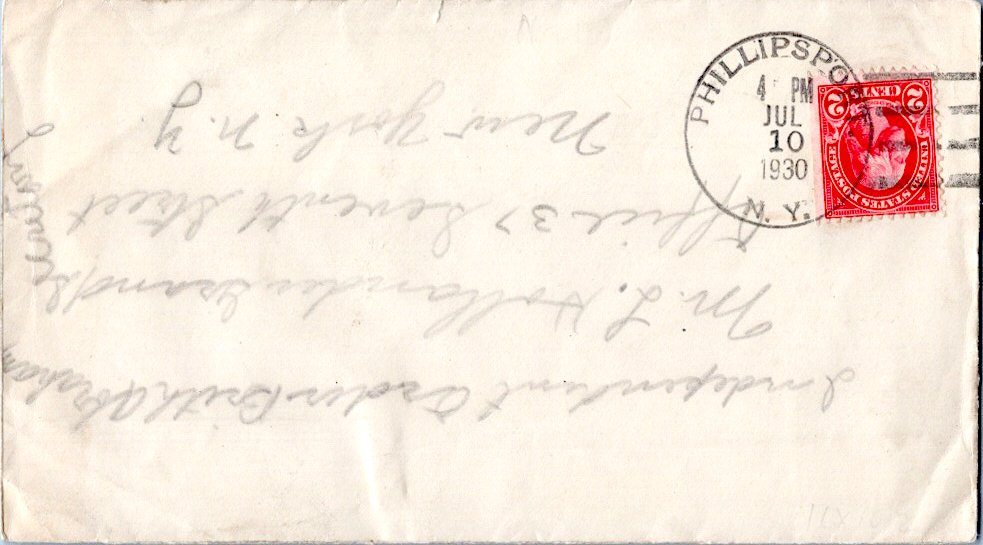 PHILLIPSPO
4 PM
JUL
10
1930
N. Y.
UNITED STATES POSTAGE
2 CENTS 2
Independent Order Brith Abraham
M. L. Hollander Grand Secretary
Office 37 Seventh Street
New York N. Y